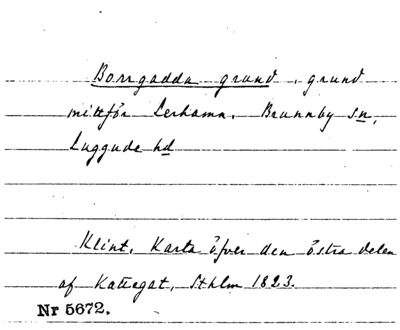 Borrgadda grund, grund
mittför Lerhamn. Brunnby sn,
Luggude hd
Klint, Karta öfver den östra delen
af Kattegat, Sthlm 1823.
Nr 5672.